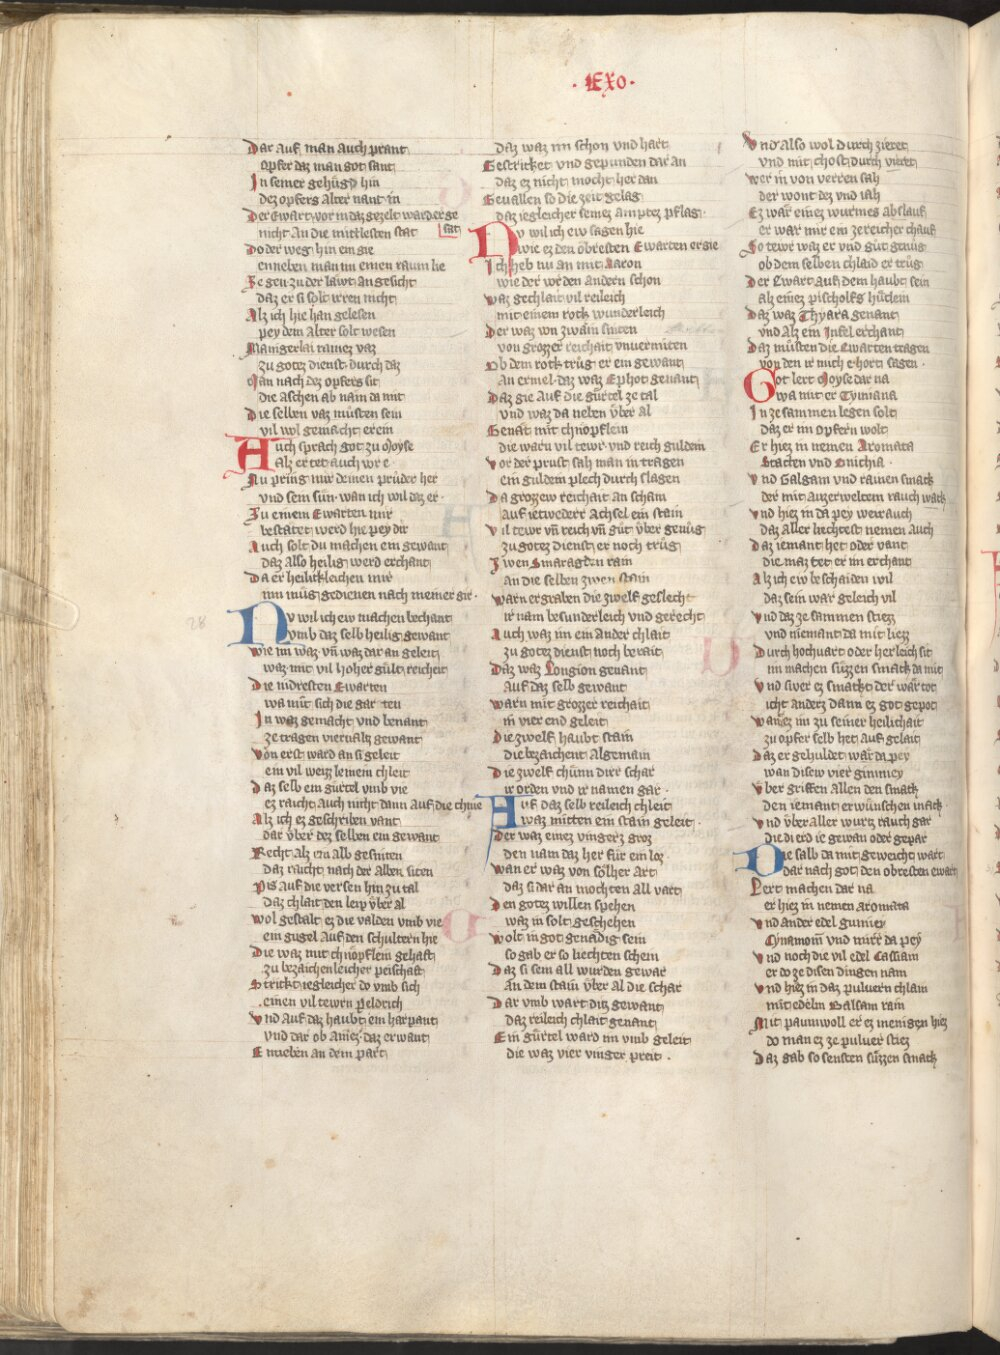 · Exo ·
Dar auf man auch prant
opfer daz man got sant
In seiner gehügd hin
dez opfers alter nant in
Der Ewart vor in daz gezelt ward erge
nicht An die mittlesten stat sat
Do der weg hin em gie
enneben man im einen raum lie
Ze gen zu der lawt angesicht
daz er si solt irren nicht
Alz ich hie han gelesen
pey dem Alter solt wesen
Maingerlai rainez vaz
zu gotez dienst durch daz
Man nach dez opfers sit
die aschen ab nam da mit
Die selben vaz müsten sein
vil wol gemacht erein
Auch sprach got zu Moyse
Alz er tet auch wr e ·
Nu pring mir deinen prüder her
vnd sein sün · wan ich wil daz er ·
Zu einem Ewarten mir
bestätet werd hie pey dir
Auch solt du machen ein gewant
daz also heilig werd erchant
Da er heilikleichen mir
inn müg gedienen nach meiner gir ·
28
Nv wil ich ew machen bechant
vmb daz selb heilig gewant
wie im waz vn̄ waz dar an geleit
waz mit vil hoher gült reicheit
Die nidresten Ewarten
wa mit sich die gar ten
In waz gemacht vnd benant
ze tragen viervaltz gewant
Von erst ward an si geleit
ein vil weizz leinein chleit
Daz selb ein gürtel vmb vie
ez raicht auch nicht dann Auf die chnie
Alz ich ez geschriben vant
dar vber dez selben ein gewant
Recht alz ein alb gesniten
daz raicht nach der alben siten
Pis auf die versen hin zu tal
daz chlait den leip vber al
wol gestalt ez die valden vmb vie
ein gugel Auf den schultern hie
Die waz mit chnöpflein gehaft
zu bezaichenleicher peischaft
Strickt iegleicher do vmb sich
einen vil tewrn geldrich
Vnd Auf daz haubt ein harpant
vnd dar ob Ainez daz er want
Enneben an dem part
daz waz im schon vnd hart
Gestricket vnd gepunden dar an
daz ez nicht mocht her dan
Gevallen so die zeit gelag
daz iegleicher seinez amptez pflag ·
Nv wil ich ew sagen hie
wie ez den obresten Ewarten ergie
Ich heb nu an mit Aaron
wie der vor den andern schon
waz gechlait vil reileich
mit einem rock wunderleich
Der waz von zwain siniten
von grozzer reichait vnuermiten
Ob dem rock trüg er ein gewant
An ermel · daz waz Ephot genant
Daz gie Auf die gürtel ze tal
vnd waz da neben vber al
Genät mit chnöpflein
die warn vil tewr vnd reich guldein
Vor der prust sah man in tragen
ein guldein plech durch slagen
Da grozzew reichait an scham
auf ietwederr Achsel ein stain
Vil tewr vn̄ reich vn̄ güt vber genüg
zu gotez dienst er noch trüg
Zwen Smaragden rain
an die selben zwen stain
warn ergraben die zwelf geslecht
ir nam besunderleich vnd gerecht
Auch waz im ein Ander chlait
zu gotez dienst noch berait
Daz waz Longion genant
Auf daz selb gewant
warn mit grozzer reichait
in vier end geleit
Die zwelf haubt stain
die bezaichent Algemain
Die zwelf chünn dirr schar
ir orden vnd ir namen gar ·
Auf daz selb reileich chleit
waz mitten ein stain geleit ·
Der waz einez vingerz groz
den nam daz her für ein loz
wan er waz von sölher art
daz si dar an mochten all vart
Den gotez willen spehen
waz in solt geschehen
wolt in got genädig sein
so gab er so liechten schein
Daz si sein all wurden gewar
An dem stain vber al die schar
Dar vmb wart ditz gewant
daz reileich chlait genant
Ein gürtel ward im vmb geleit
die waz vier vinger preit ·
Vnd Also wol durch zieret
vnd mit chost durch vieret
wer in von verren sah
der wont dez vnd iah
Ez wär einez wurmes abslauf
er wär mir ein zereicher chauf
So tewr waz er vnd güt genüg
ob dem selben chlaid er trüg
Der Ewart auf dem haubt sein
alz einez pischolfs hütlein
Daz waz Thyara genant
vnd Alz ein Infel erchant
Daz müsten die Ewarten tragen
von den ir mich e hort sagen ·
Got lert Moyse dar na
wa mit er Tymiana
In ze sammen legen solt
daz er im opfern wolt
Er hiez in nemen Aromata
Stacten vnd Onichia ·
Vnd Galgam vnd rainen smack
der mit auzerweltem rauch wach
Vnd hiez in da pey weirauch
daz aller liechtest nemen auch
Daz iemant het oder vant
die maz tet er im erchant
Alz ich ew beschaiden wil
daz sein wär geleich vil
Vnd daz ze sammen stiezz
vnd niemant da mit liezz
Durch hochvart oder herleich sit
im machen süzzen smack da mit
Vnd swer ez smackt der wär tot
icht anderz dann ez got gepot
wan ez im zu seiner heilichait
zu opfer selb het auf gelait
Daz er gehuldet wär da pey
wan disew vier gimmey
Vber griffen Allen den smack
den iemant erwünschen mack
Vnd vber aller wurtz rauch gar
die di erd ie gewan oder gepar
Die salb da mit geweicht wart
dar nach got den obresten ewart
Lert machen dar na
er hiez in nemen aromata
Vnd ander edel gumiey
Cynamom̄ vnd mirr da pey
Vnd noch die vil edel Cassiam
er do ze disen dingen nam
Vnd hiez in daz puluern chlain
mit edelm Balsam rain
Mit paumwoll er ez menigen hiez
do man ez ze puluer stiez
Daz gab so senften süzzen smack